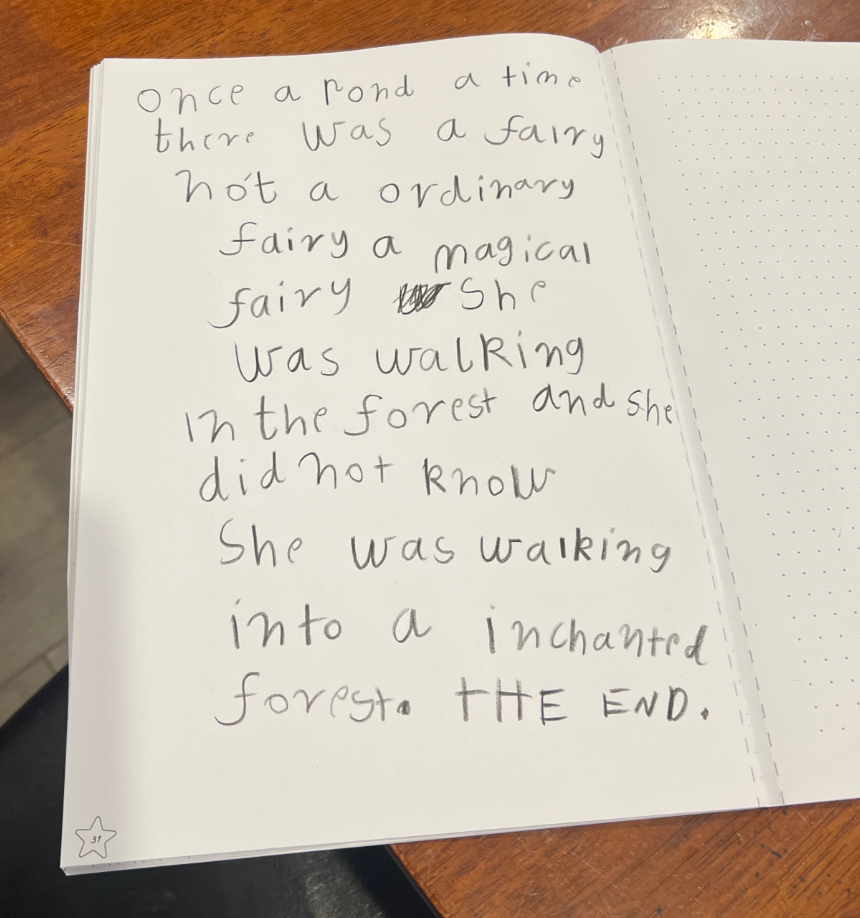 once a pond a time
there was a fairy
not a ordinary
fairy a magical
fairy she
was walking
in the forest and she
did not know
She was walking
into a inchanted
forest. tHE END.
31